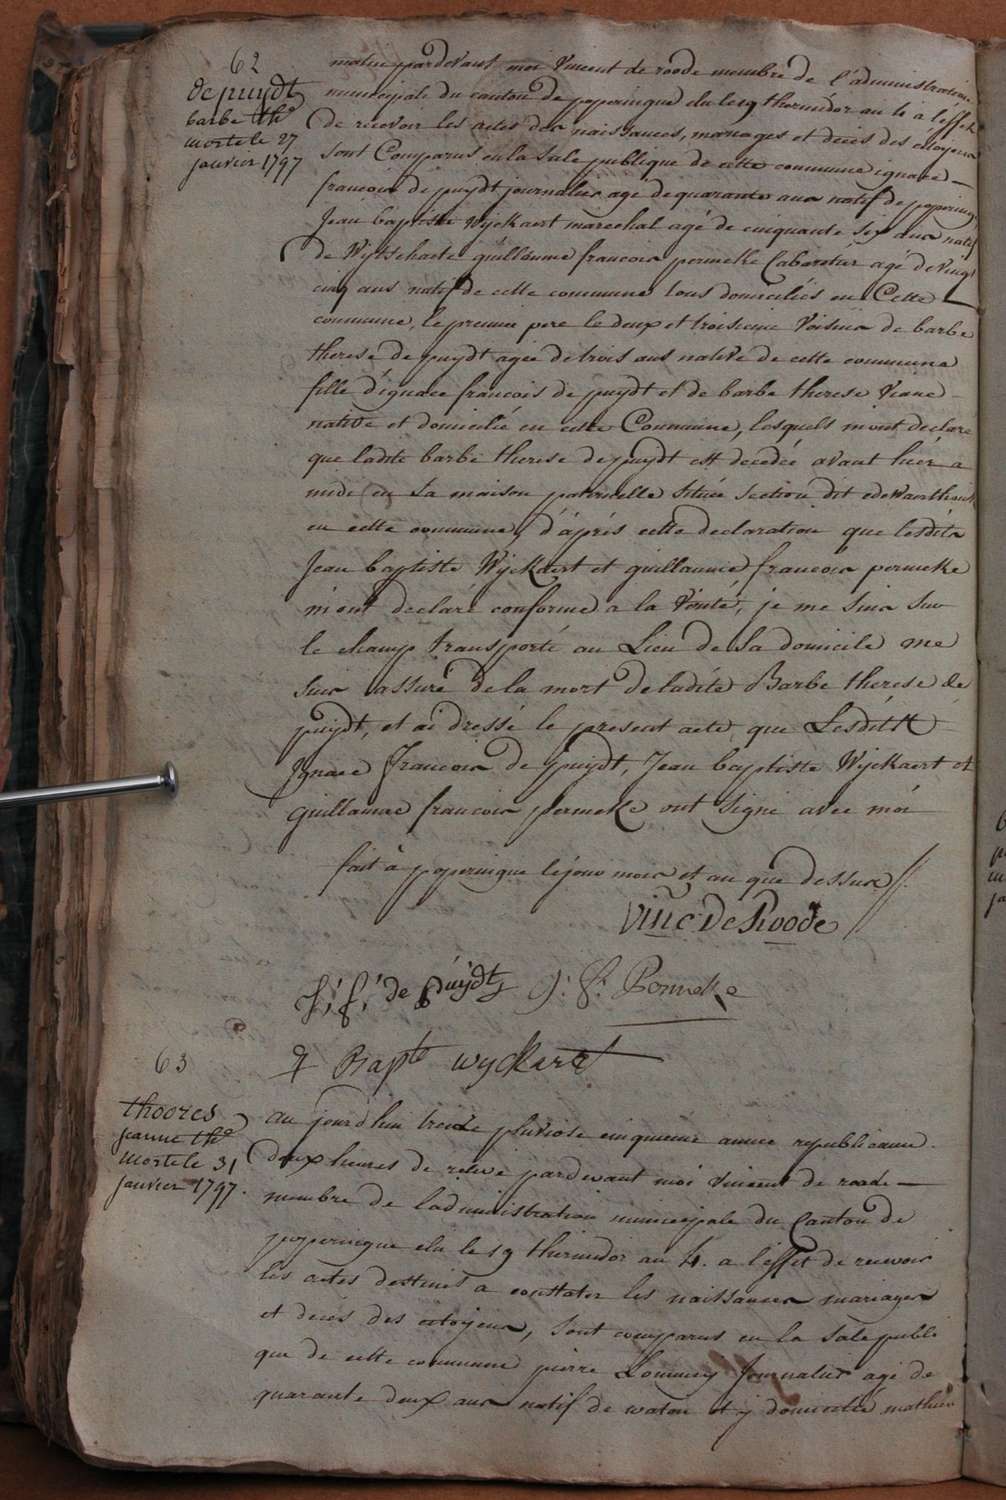 62
de puydt
barbe the
morte le 27
janvier 1797
matin pardevant moi Vincent de roode membre de l'administration
municipale du canton de poperingue elu le 19 thermidor an 4 a l'effet
de recevoir les actes des naissances, mariages et décès des citoyens
sont Comparus en la sale publique de cette commune ignace
francois de puydt journalier agé de quarante ans natif de poperingue
Jean baptiste Wyckaert marechal agé de cinquante six ans natif
de Wytschaete guillaume francois permeke Cabaretier agé de vingt
cinq ans natif de cette commune tous domiciliés en Cette
commune, le premier pere le deux et troisieme Voisins de barbe
therese de puydt agée de trois ans native de cette commune
fille d'ignace francois de puydt et de barbe therese
native et domicilié en cette Commune, lesquels m'ont declaré
que ladite barbe therese de puydt est decedée avant hier a
midi en La maison paternelle Située Section dit
en cette commune, d'après cette declaration que lesdits
Jean baptiste Wyckaert et guillaume francois permeke
m'ont declaré conforme a la Vérité, je me suis sur
le champ transporté au Lieu de sa domicile me
suis assuré de la mort de ladite Barbe therese de
puydt, et ai dressé le present acte que Lesdits
Ignace Francois de puydt, Jean baptiste Wyckaert et
guillaume francois permeke ont signé avec moi
fait à poperingue le jour mois et an que dessus
Vinc De Roode
J: f: de puijdt g: f: Permeke
J Bapte wyckaert
63
thoores
jeanne the
morte le 31
janvier 1797.
au jourd'hui treize pluviose cinquieme année republicaine
deux heures de relevé pardevant moi Vincent de roode
membre de l'administration municipale du Canton de
poperingue elu le 19 thermidor an 4. a l'effet de recevoir
les actes destinés a constater les naissances mariages
et deces des citoyens, sont comparus en la Sale publi
que de cette commune pierre Journalier agé de
quarante deux ans natif de watou et y domicilié mathieu